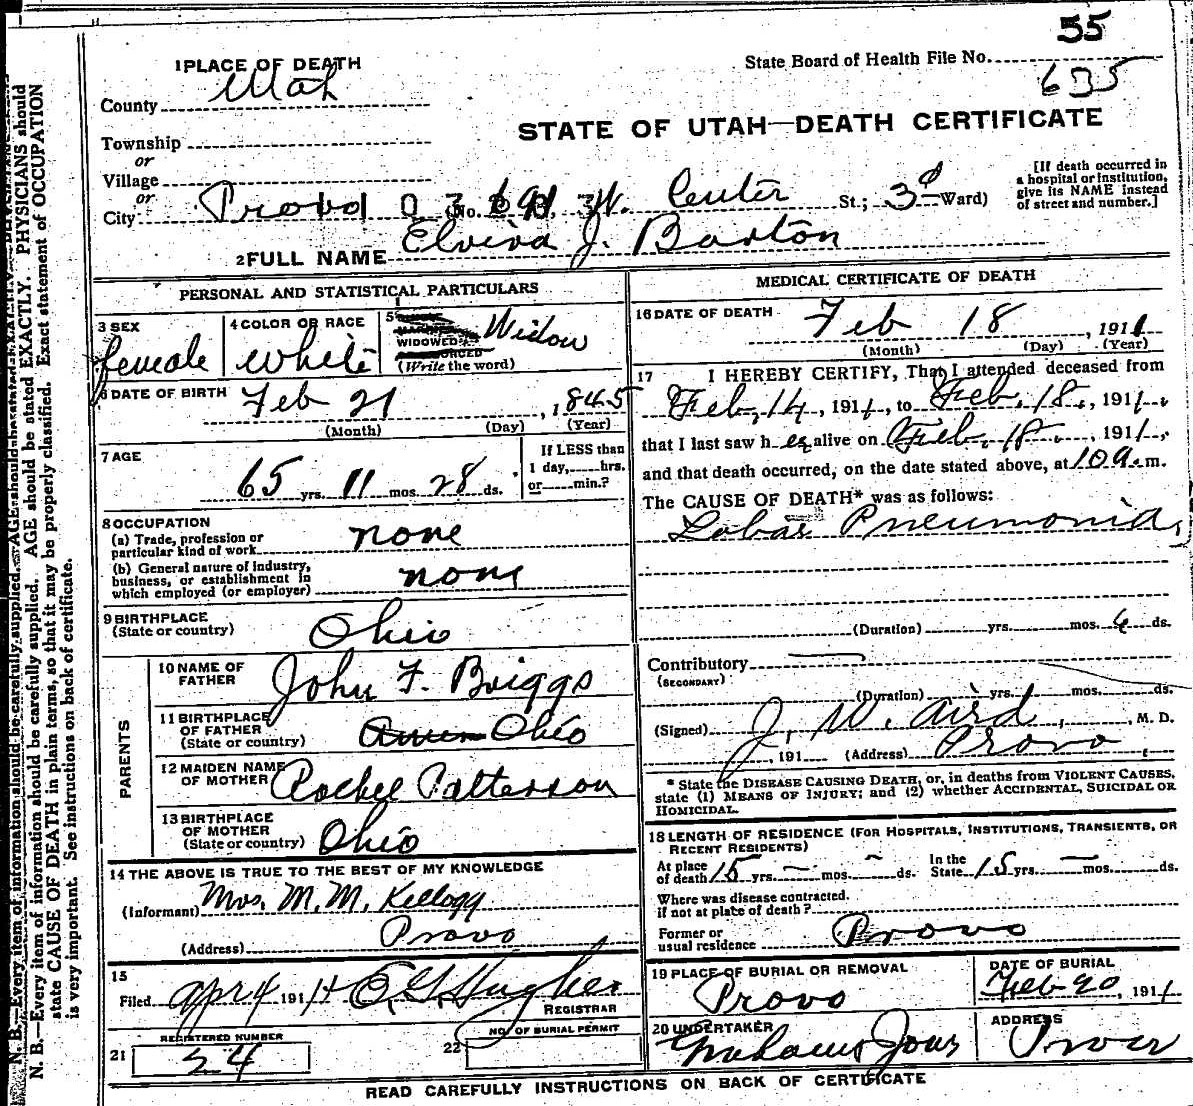 55
State Board of Health File No.
635
1 PLACE OF DEATH
County Utah
STATE OF UTAH—DEATH CERTIFICATE
Township
or
Village
or
City Provo (No. W. Center St.; 3d Ward)
[If death occurred in a hospital or institution, give its NAME instead of street and number.]
2 FULL NAME Elvira J. Barton
PERSONAL AND STATISTICAL PARTICULARS
3 SEX
female
4 COLOR OR RACE
White
5
WIDOWED
Widow
(Write the word)
6 DATE OF BIRTH Feb 21, 1845
(Month) (Day) (Year)
7 AGE
65 yrs. 11 mos. 28 ds.
If LESS than
1 day, hrs.
or min.?
8 OCCUPATION
(a) Trade, profession or
particular kind of work none
(b) General nature of industry,
business, or establishment in
which employed (or employer) none
9 BIRTHPLACE
(State or country) Ohio
PARENTS
10 NAME OF
FATHER John F. Briggs
11 BIRTHPLACE
OF FATHER
(State or country) Ohio
12 MAIDEN NAME
OF MOTHER Rachel Patterson
13 BIRTHPLACE
OF MOTHER
(State or country) Ohio
14 THE ABOVE IS TRUE TO THE BEST OF MY KNOWLEDGE
(Informant) Mrs. M. M. Kellogg
(Address) Provo
15
Filed Apr 4 191
REGISTRAR
REGISTERED NUMBER
21 54
NO. OF BURIAL PERMIT
22
MEDICAL CERTIFICATE OF DEATH
16 DATE OF DEATH Feb 18, 1911
(Month) (Day) (Year)
17 I HEREBY CERTIFY, That I attended deceased from
Feb. 14, 1911, to Feb. 18, 1911,
that I last saw her alive on Feb. 18, 1911,
and that death occurred, on the date stated above, at 10 a.m.
The CAUSE OF DEATH* was as follows:
Lobar Pneumonia,
(Duration) yrs. mos. 4 ds.
Contributory
(SECONDARY)
(Duration) yrs. mos. ds.
(Signed) J. W. Aird, M. D.
, 191 (Address) Provo
* State the DISEASE CAUSING DEATH, or, in deaths from VIOLENT CAUSES,
state (1) MEANS OF INJURY; and (2) whether ACCIDENTAL, SUICIDAL OR
HOMICIDAL.
18 LENGTH OF RESIDENCE (FOR HOSPITALS, INSTITUTIONS, TRANSIENTS, OR
RECENT RESIDENTS)
At place
of death 15 yrs. — mos. — ds.
In the
State 15 yrs. — mos. ds.
Where was disease contracted.
if not at place of death?
Former or
usual residence Provo
19 PLACE OF BURIAL OR REMOVAL
Provo
DATE OF BURIAL
Feb 20, 1911
20 UNDERTAKER
ADDRESS
READ CAREFULLY INSTRUCTIONS ON BACK OF CERTIFICATE
N. B.—Every item of information should be carefully supplied. AGE should be stated EXACTLY. PHYSICIANS should
state CAUSE OF DEATH in plain terms, so that it may be properly classified. Exact statement of OCCUPATION
is very important. See instructions on back of certificate.